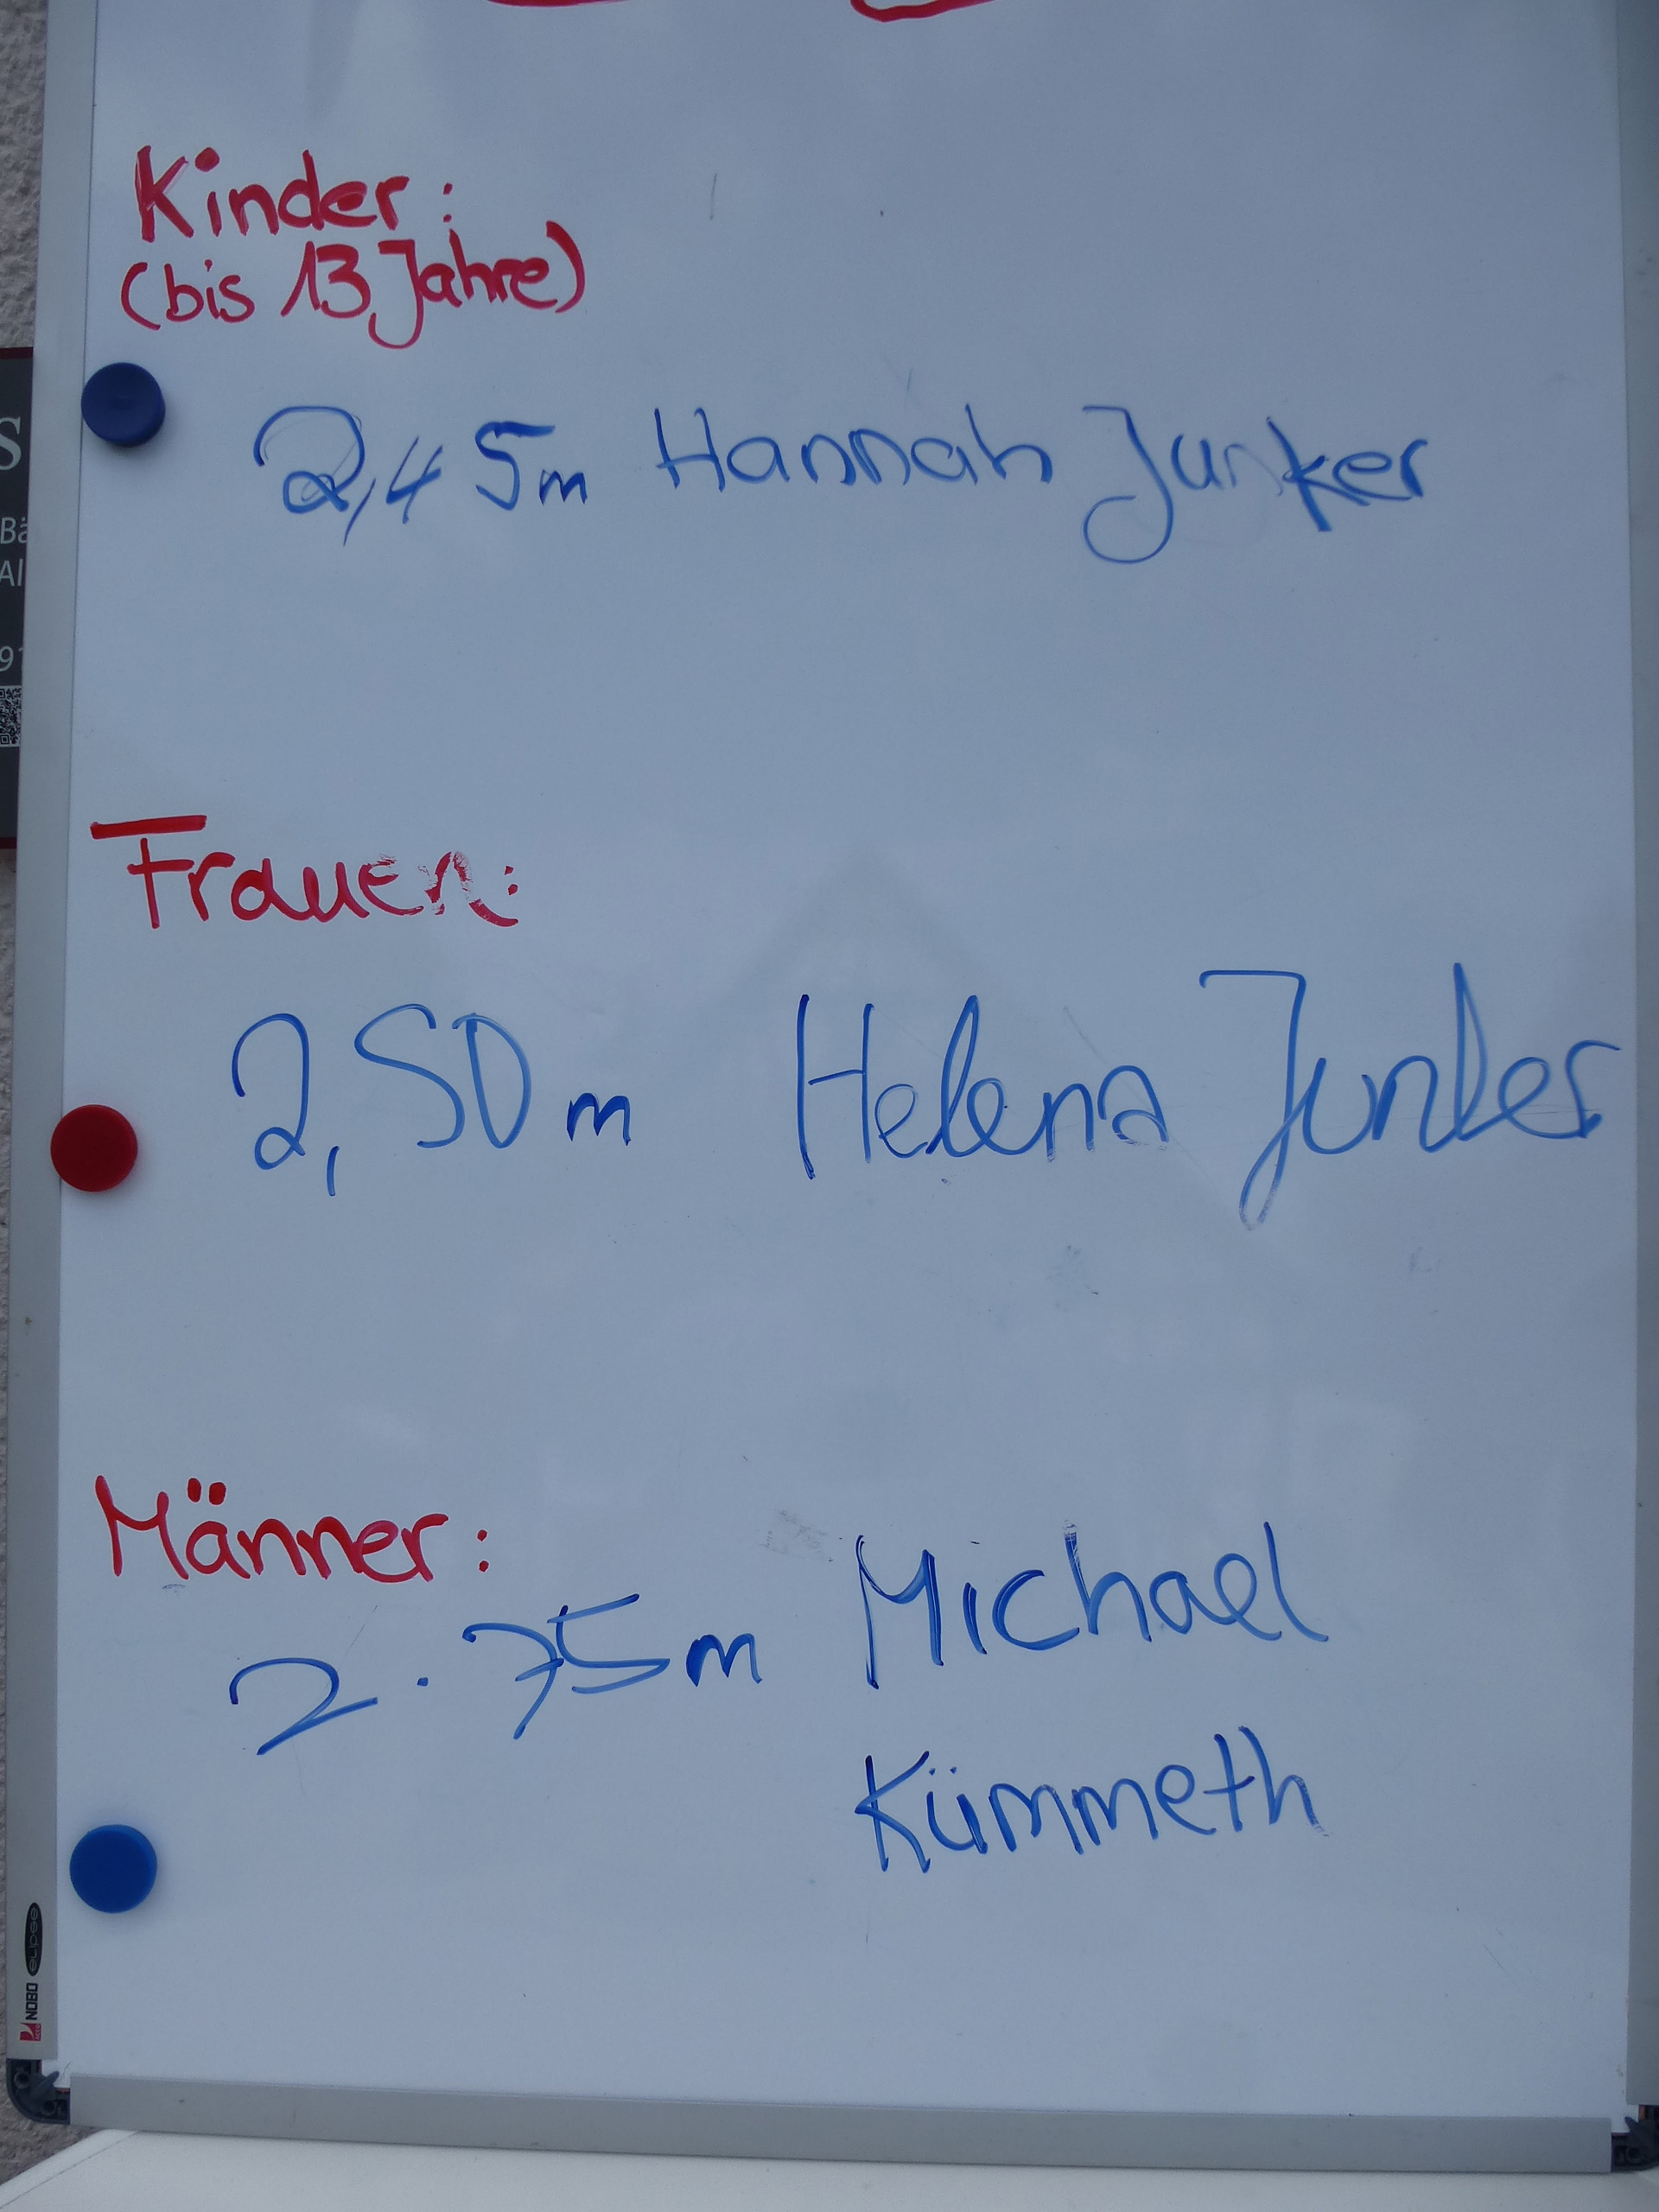 Kinder:
(bis 13 Jahre)
2,45m Hannah Junker
Frauen:
2,50m Helena Junker
Männer:
2.75m Michael
Kümmeth
S
Bä
Al
91
NOBO
elipse